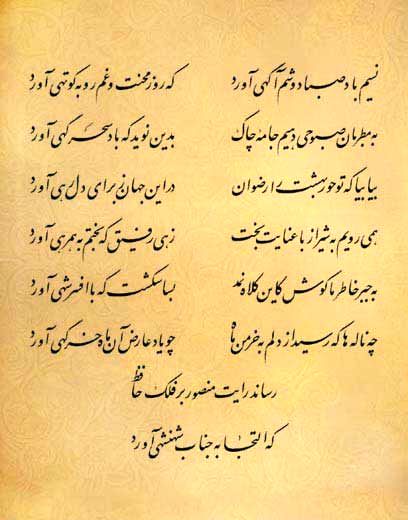 نسیم باد صبا دوشم آگهی آورد که روز محنت و غم رو به کوتهی آورد
به مطربان صبوحی دهیم جامه چاک بدین نوید که باد سحرگهی آورد
بیا بیا که تو حور بهشت را رضوان در این جهان ز برای دل رهی آورد
همی رویم به شیراز با عنایت بخت زهی رفیق که بختم به همرهی آورد
به جبر خاطر ما کوش کاین کلاه نمد بسا شکست که با افسر شهی آورد
چه ناله ها که رسید از دلم به خرمن ماه چو یاد عارض آن ماه خرگهی آورد
رساند رایت منصور بر فلک حافظ
که التجا به جناب شهنشهی آورد